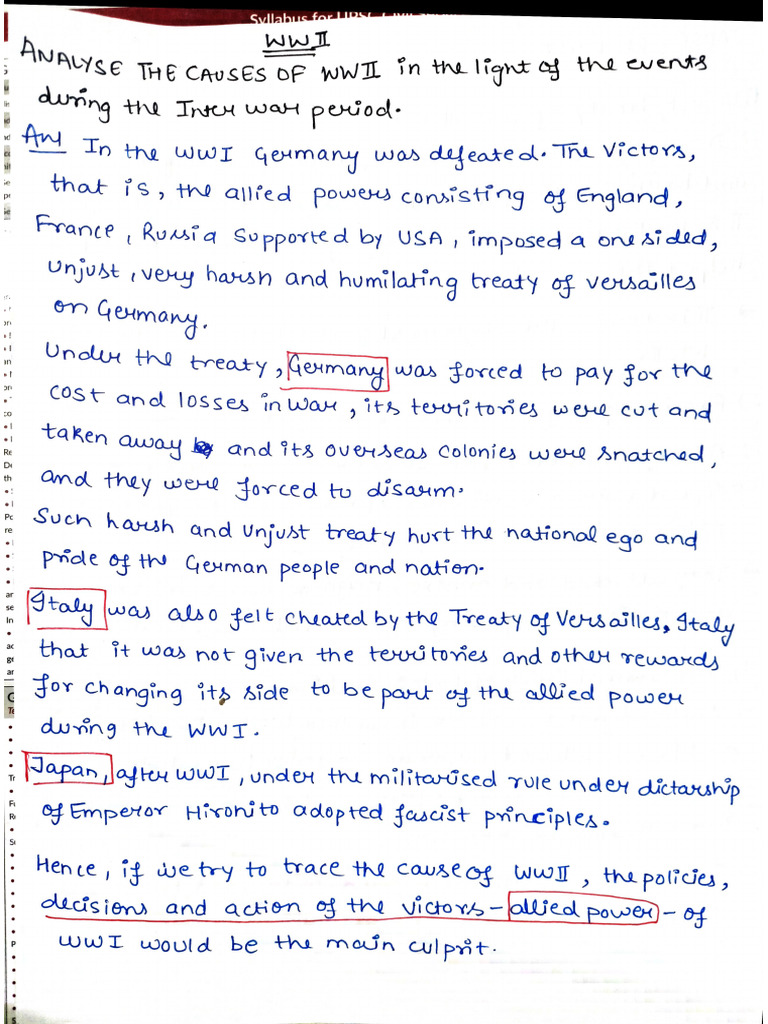 Syllabus for UPSC Civil
WWII
ANALYSE THE CAUSES OF WWII in the light of the events
during the Inter war period.
Ans In the WWI Germany was defeated. The Victors,
that is, the allied powers consisting of England,
France, Russia supported by USA, imposed a one sided,
unjust, very harsh and humilating treaty of versailles
on Germany.
Under the treaty, Germany was forced to pay for the
cost and losses in war, its territories were cut and
taken away and its overseas colonies were snatched,
and they were forced to disarm.
Such harsh and unjust treaty hurt the national ego and
pride of the German people and nation.
Italy was also felt cheated by the Treaty of Versailles, Italy
that it was not given the territories and other rewards
for changing its side to be part of the allied power
during the WWI.
Japan, after WWI, under the militarised rule under dictarship
of Emperor Hirohito adopted fascist principles.
Hence, if we try to trace the cause of WWII, the policies,
decisions and action of the victors - allied power - of
WWI would be the main culprit.